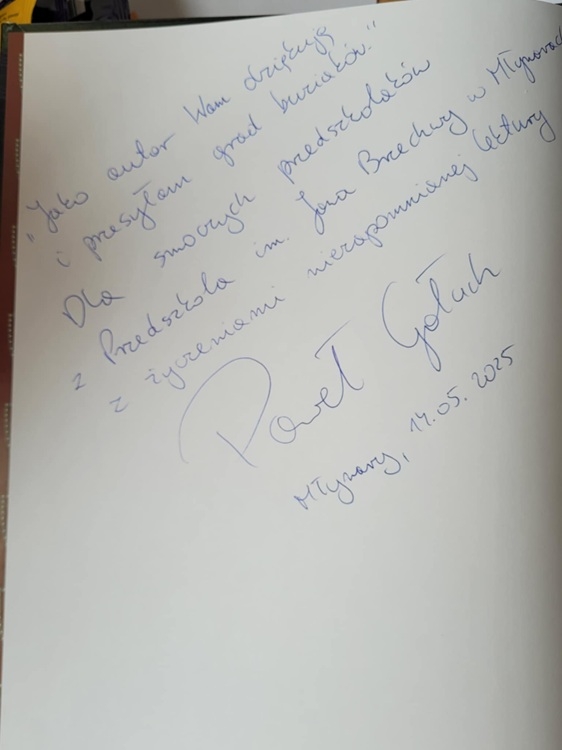 "Jako autor Wam dziękuję
i przesyłam grad buziaków."
Dla smoczych przedszkolaków
z Przedszkola im. Jana Brzechwy w Młynarach
z życzeniami niezapomnianej lektury
Paweł Gołuch
Młynary, 14.05.2025